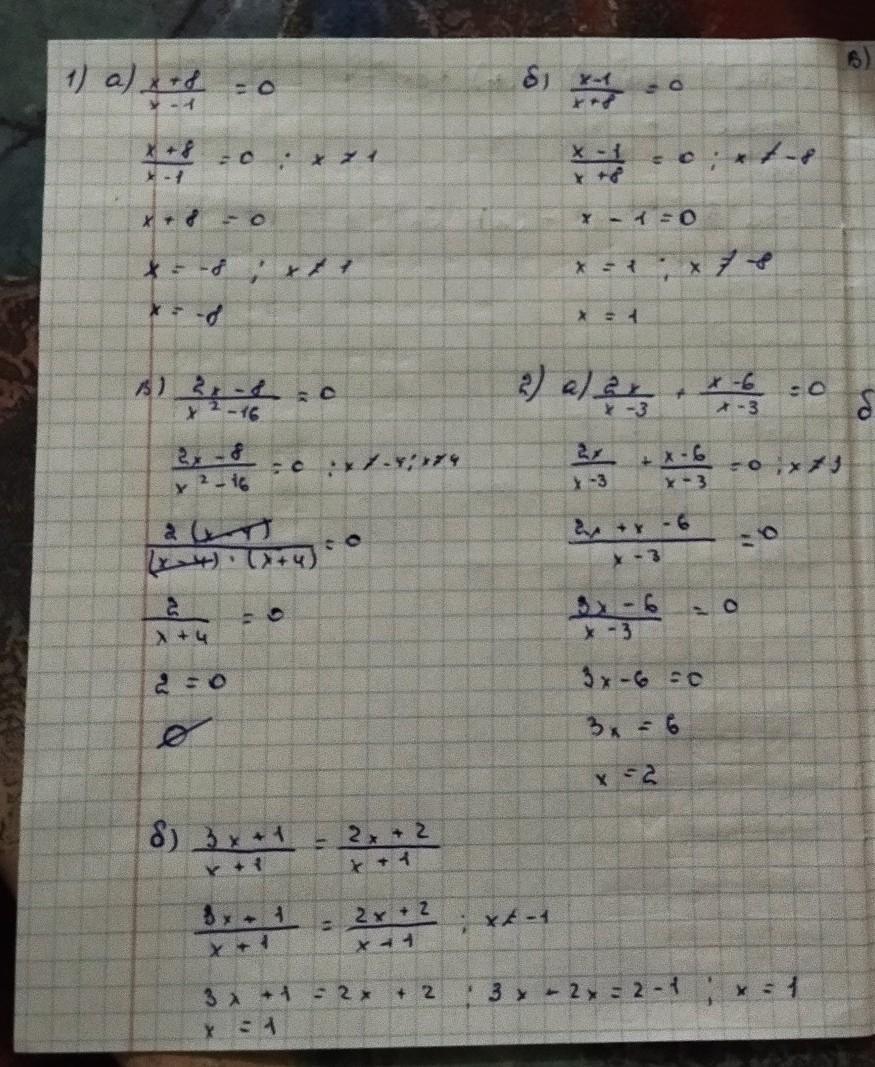 1) а) (x+8)/(x-1) = 0
(x+8)/(x-1) = 0 ; x ≠ 1
x + 8 = 0
x = -8 ; x ≠ 1
x = -8
б) (x-1)/(x+8) = 0
(x-1)/(x+8) = 0 ; x ≠ -8
x - 1 = 0
x = 1 ; x ≠ -8
x = 1
в)
в) (2x-8)/(x²-16) = 0
(2x-8)/(x²-16) = 0 ; x ≠ -4 ; x ≠ 4
2(x-4)/((x-4)·(x+4)) = 0
2/(x+4) = 0
2 = 0
∅
2) а) 2x/(x-3) + (x-6)/(x-3) = 0
2x/(x-3) + (x-6)/(x-3) = 0 ; x ≠ 3
(2x+x-6)/(x-3) = 0
(3x-6)/(x-3) = 0
3x-6 = 0
3x = 6
x = 2
б
б) (3x+1)/(x+1) = (2x+2)/(x+1)
(3x+1)/(x+1) = (2x+2)/(x+1) ; x ≠ -1
3x + 1 = 2x + 2 ; 3x - 2x = 2-1 ; x = 1
x = 1